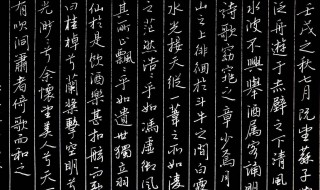 壬戌之秋七月既望蘇子
泛舟游于赤壁之下清風
水波不興舉酒屬客誦明
詩歌窈窕之章少焉月
山之上徘徊於斗牛之間白露
水光接天縱一葦之所如凌
之茫然浩〻乎如馮虛御風
其所止飄〻乎如遺世獨立羽
仙於是飲酒樂甚扣舷而
曰桂棹兮蘭槳擊空明兮
光渺〻兮余懷望美人兮天一
有吹洞簫者倚歌而和之